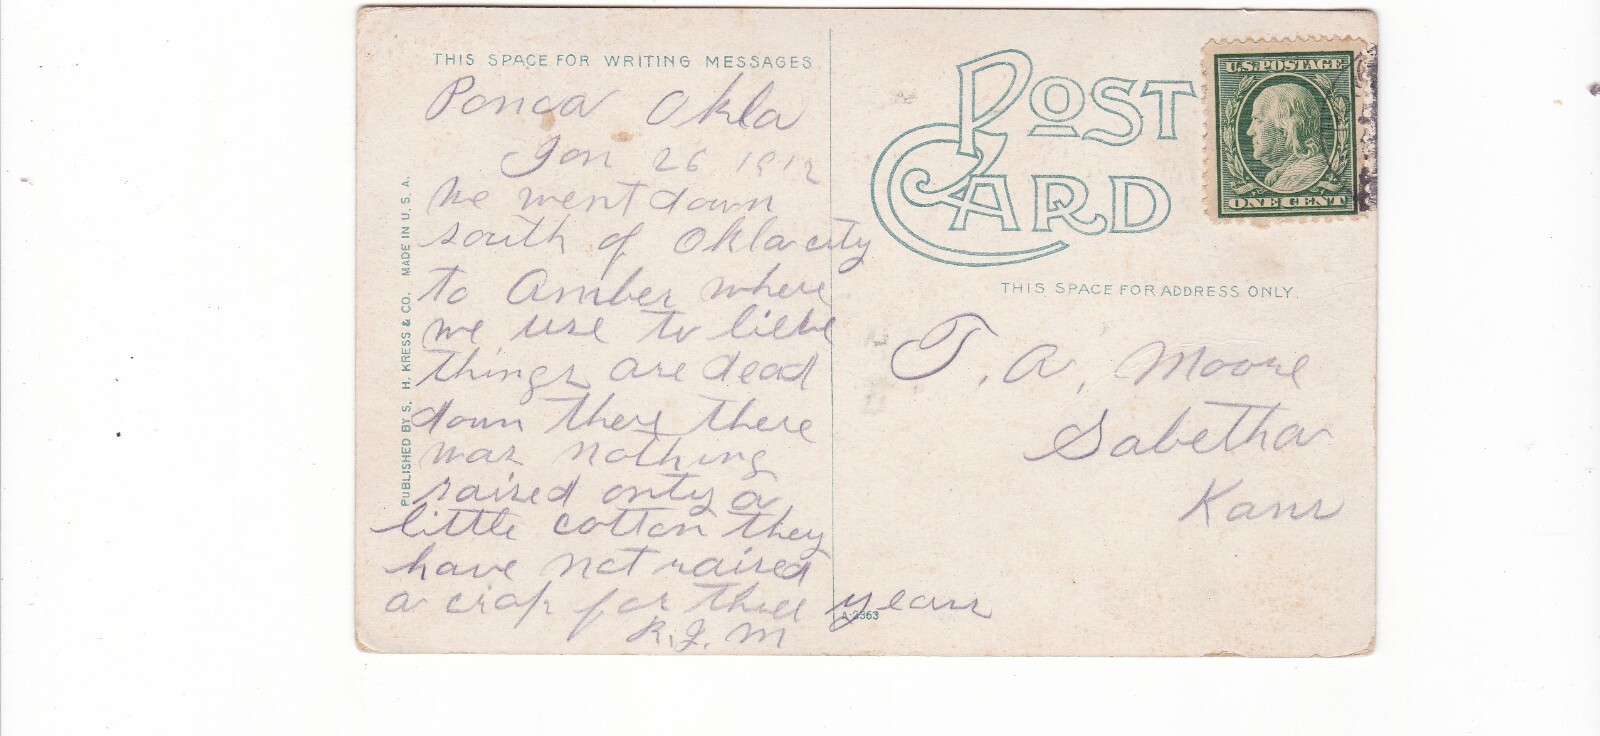 THIS SPACE FOR WRITING MESSAGES
Ponca Okla
Jan 26 1912
we went down
south of Okla city
to Amber where
we use to lieve
things are dead
down there there
was nothing
raised only a
little cotton they
have not raised
a crop for three years
R. J. M
PUBLISHED BY S. H. KRESS & CO. MADE IN U. S. A.
POST
CARD
U.S. POSTAGE
ONE CENT
THIS SPACE FOR ADDRESS ONLY.
T. A. Moore
Sabetha
Kans
A-2363